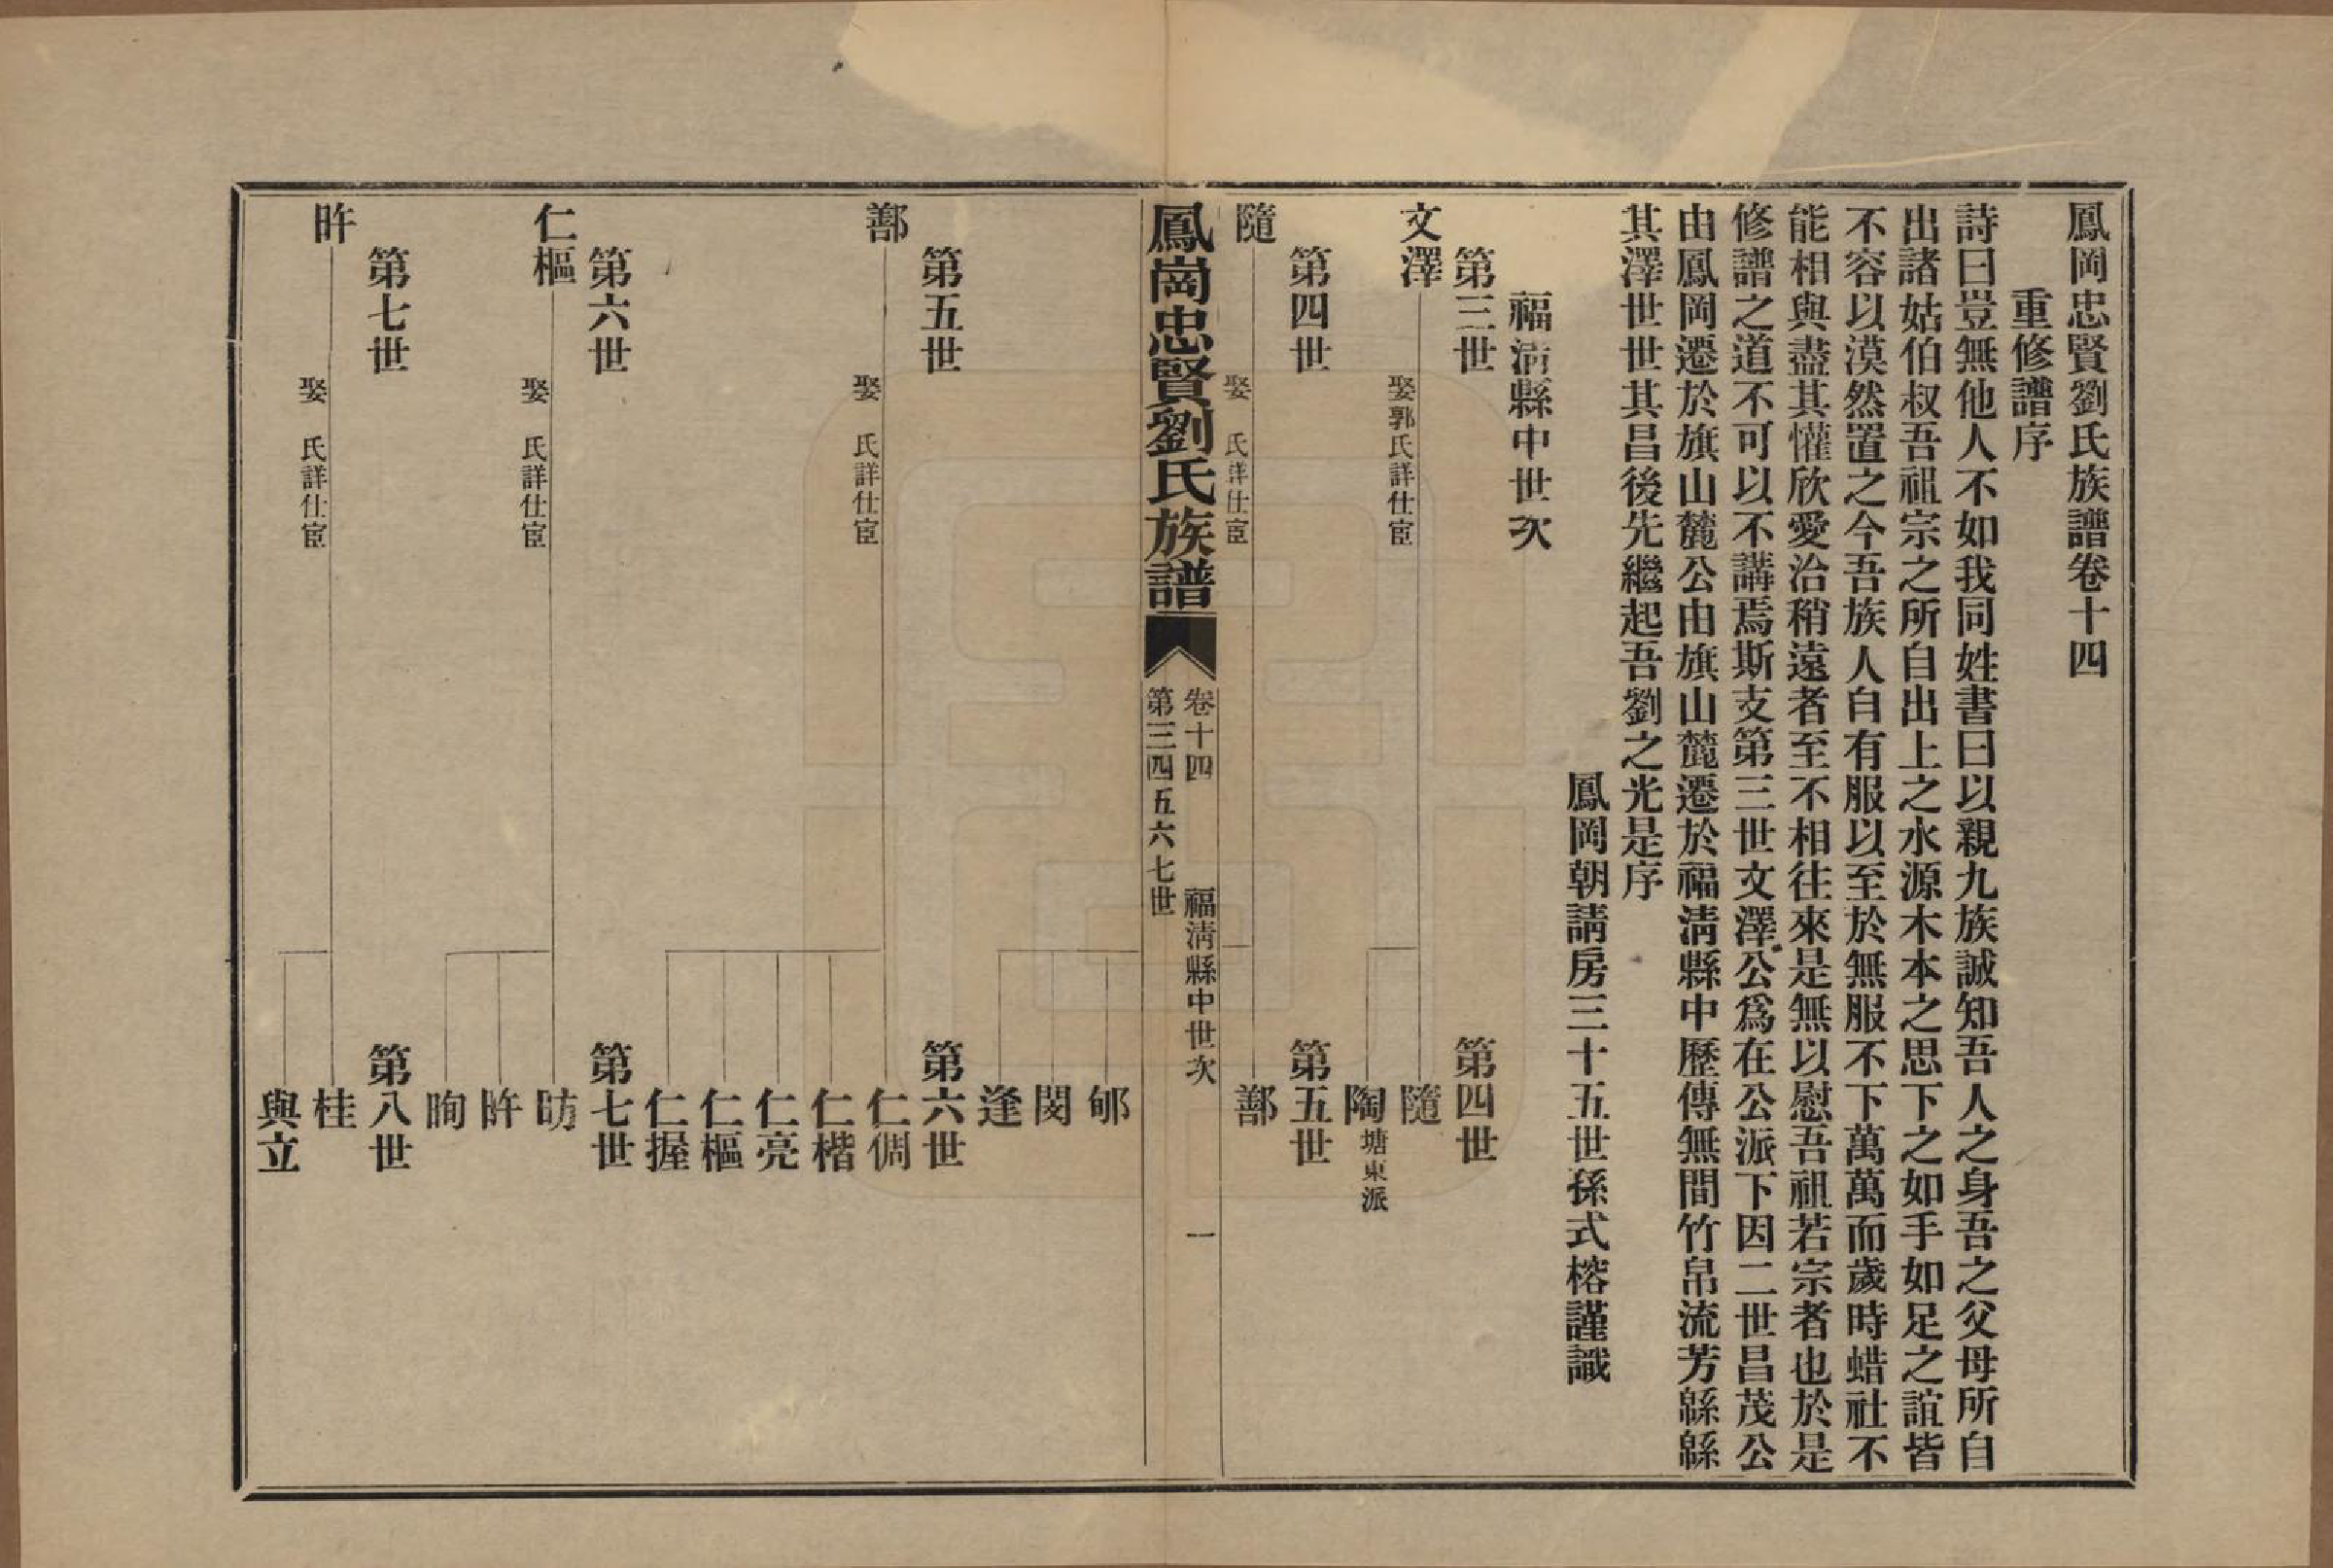 鳳岡忠賢劉氏族譜卷十四
重修譜序
詩曰豈無他人不如我同姓書曰以親九族誠知吾人之身吾之父母所自
出諸姑伯叔吾祖宗之所自出上之水源木本之思下之如手如足之誼皆
不容以漠然置之今吾族人自有服以至於無服不下萬萬而歲時蜡社不
能相與盡其懽欣愛洽稍遠者至不相往來是無以慰吾祖若宗者也於是
修譜之道不可以不講焉斯支第三世文澤公爲在公派下因二世昌茂公
由鳳岡遷於旗山麓公由旗山麓遷於福淸縣中歷傳無間竹帛流芳緜緜
其澤世世其昌後先繼起吾劉之光是序
鳳岡朝請房三十五世孫式榕謹識
福淸縣中世次
第三世
第四世
文澤
娶郭氏詳仕宦
隨
陶塘東派
第四世
第五世
隨
娶 氏詳仕宦
鄯
鳳崗忠賢劉氏族譜
卷十四
福淸縣中世次
一
第三四五六七世
郇
閔
逢
第五世
第六世
鄯
娶 氏詳仕宦
仁倜
仁楷
仁亮
仁樞
仁握
第六世
第七世
仁樞
娶 氏詳仕宦
昉
旿
晌
第七世
第八世
旿
娶 氏詳仕宦
桂
與立